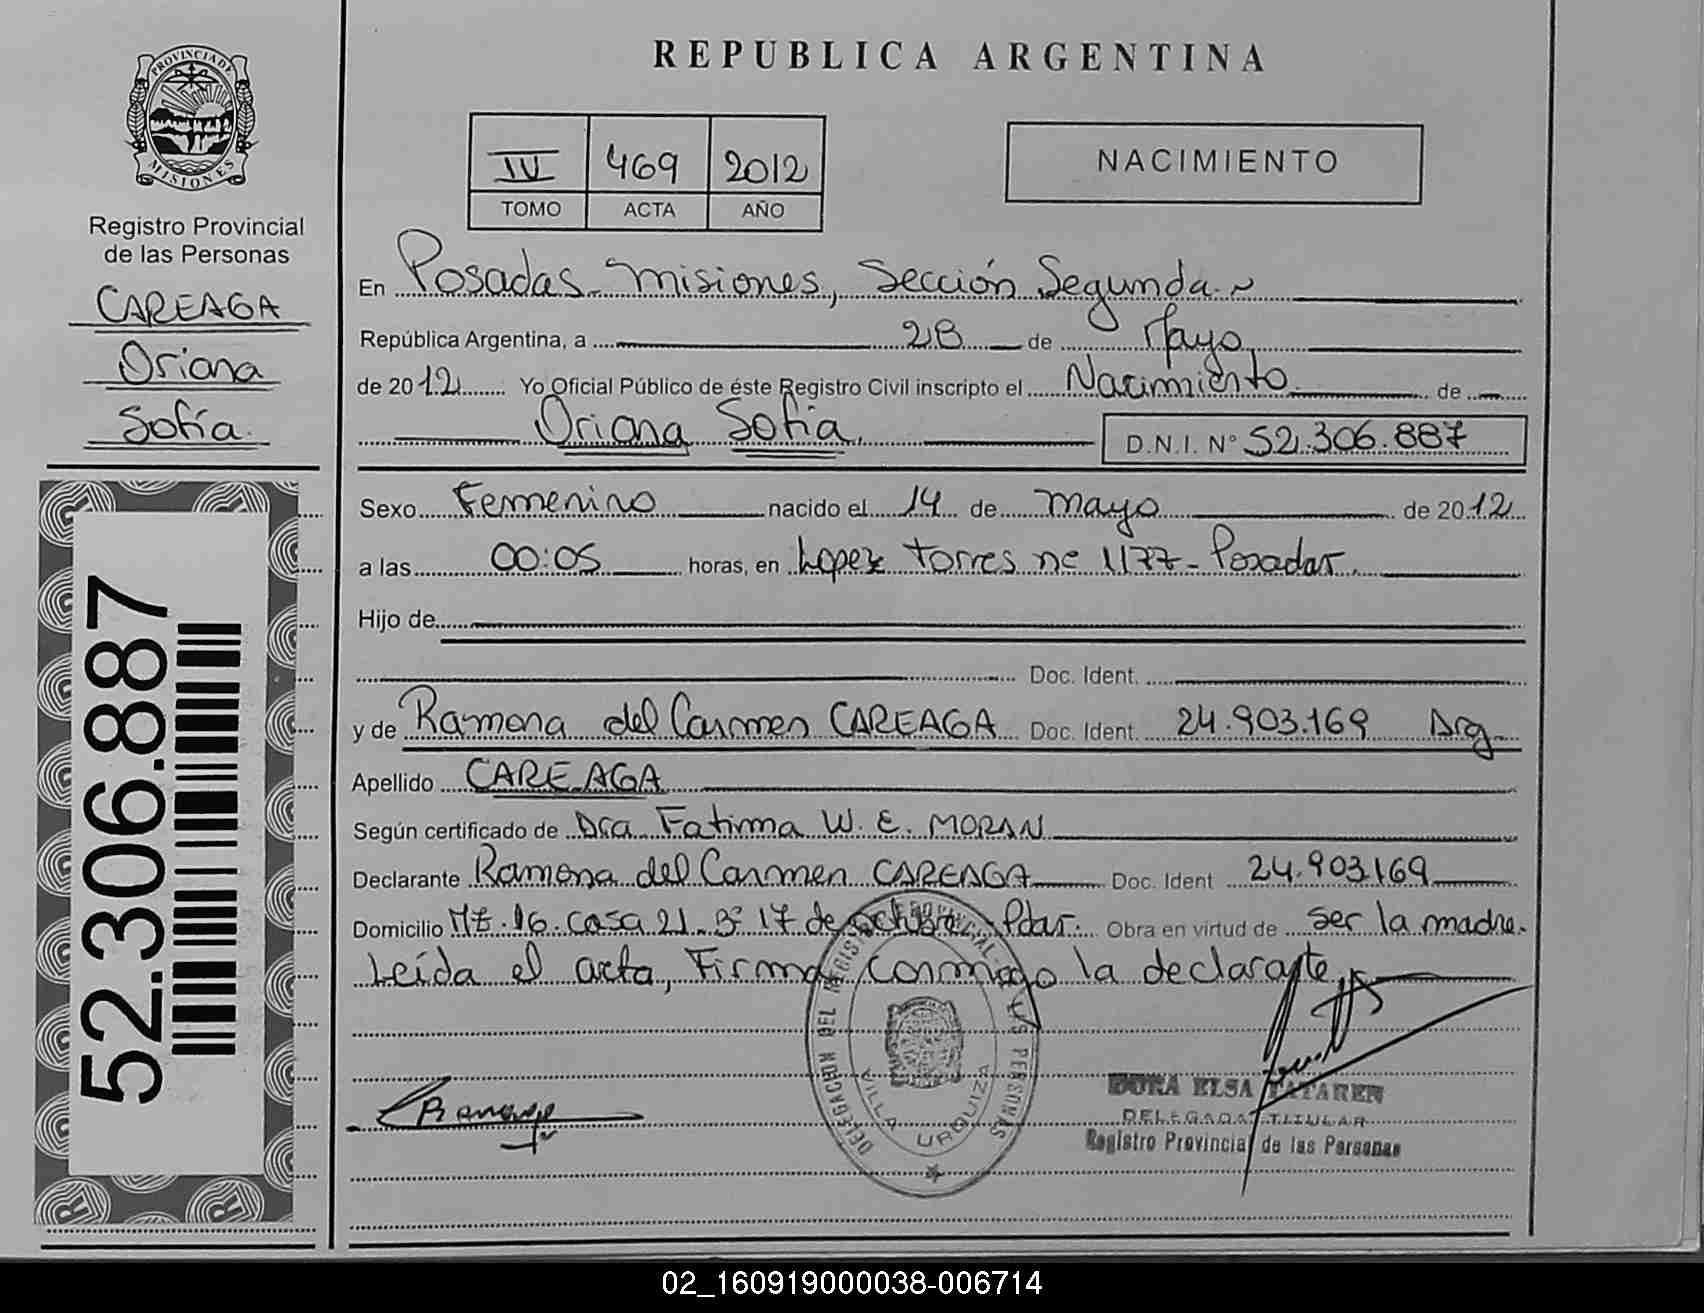 PROVINCIA DE
MISIONES
Registro Provincial
de las Personas
CAREAGA
Oriana
Sofía.
52.306.887
REPUBLICA ARGENTINA
IV 469 2012
TOMO ACTA AÑO
NACIMIENTO
En Posadas - Misiones, Sección Segunda.
República Argentina, a 28 de Mayo,
de 2012 Yo Oficial Público de éste Registro Civil inscripto el Nacimiento de
Oriana Sofía,
D.N.I. N° 52.306.887
Sexo Femenino nacido el 14 de mayo de 2012
a las 00:05 horas, en Lopez Torres nº 1177 - Posadas.
Hijo de
Doc. Ident.
y de Ramona del Carmen CAREAGA Doc. Ident. 24.903.169 Arg.
Apellido CAREAGA
Según certificado de Dra Fatima W. E. MORAN
Declarante Ramona del Carmen CAREAGA Doc. Ident 24.903.169
Domicilio Mz. 16. casa 21. Bº 17 de octubre - Pdas. Obra en virtud de ser la madre.
Leída el acta, Firma conmigo la declarante,
DELEGACION DEL REGISTRO PROVINCIAL DE LAS PERSONAS
VILLA URQUIZA
DORA ELSA
DELEGADA TITULAR
Registro Provincial de las Personas
02_160919000038-006714